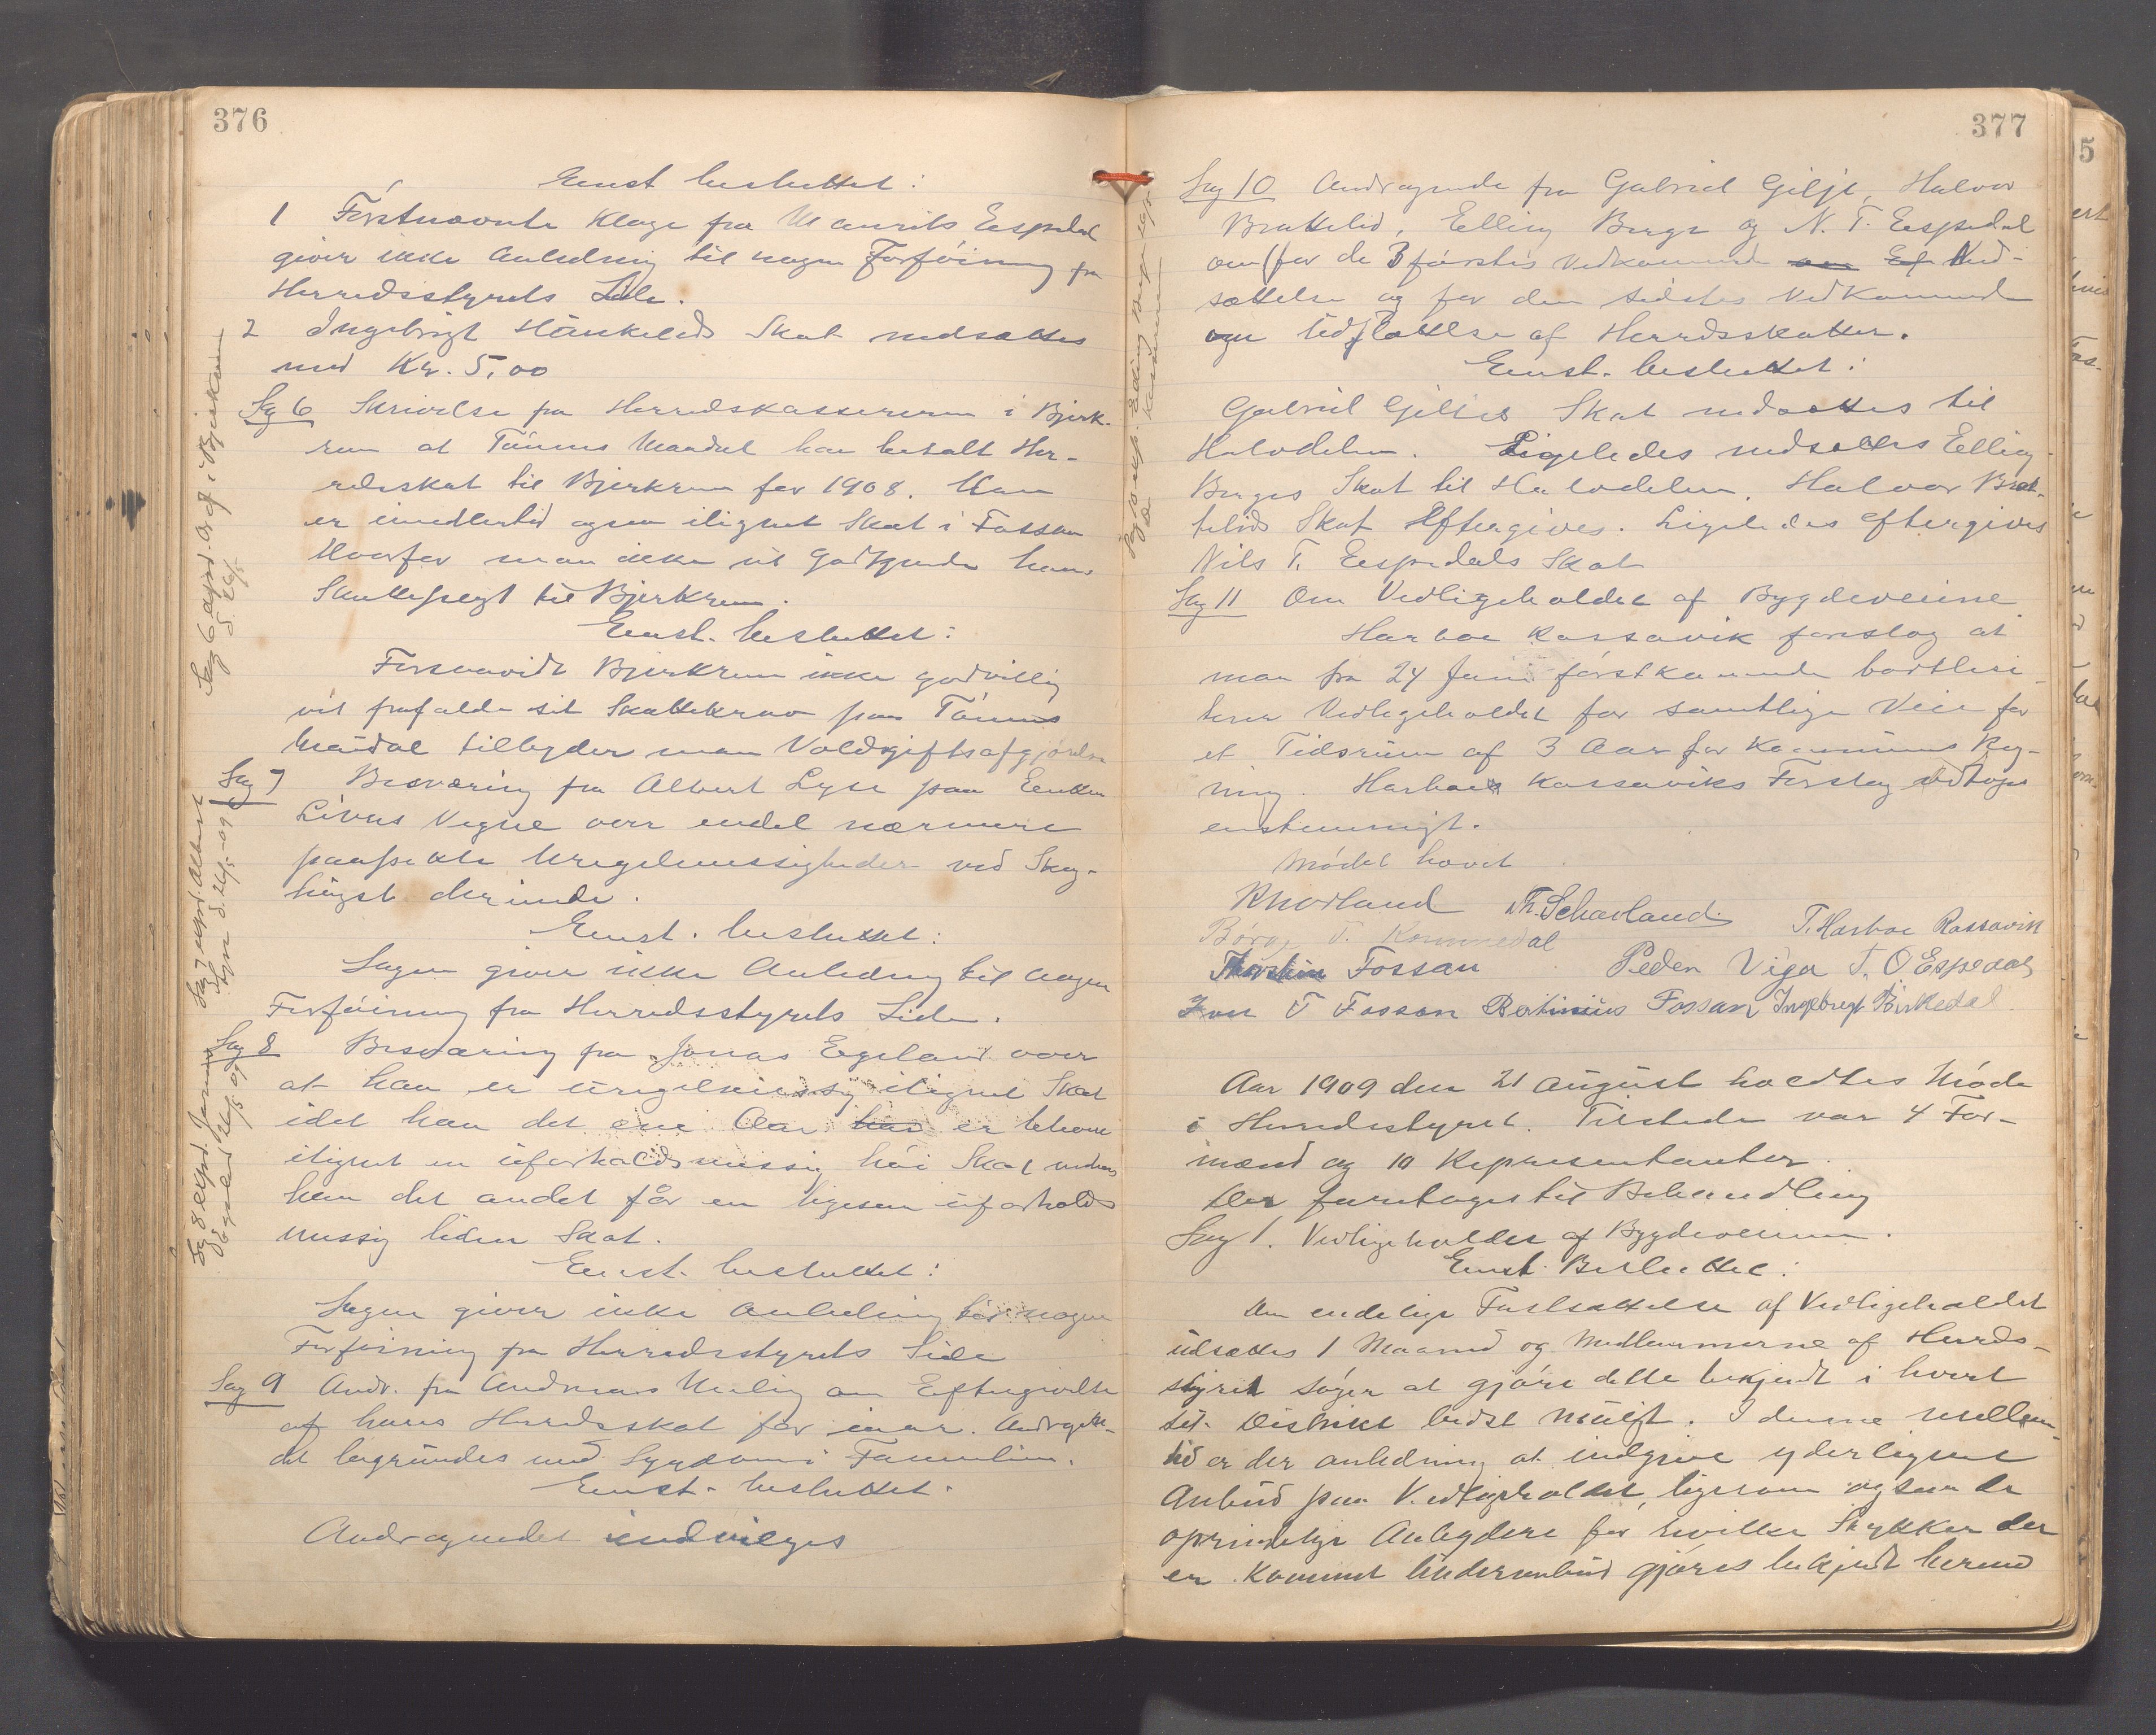 376
Enst besluttet:
1 Förstnævnte Klage fra Maurits Espedal
giver ikke Anledning til nogen Forföining fra
Herredsstyrets Side.
2 Ingebrigt Haukelids Skat nedsættes
med Kr. 5,00
Sag 6 Skrivelse fra Herredskassereren i Bjerk-
rem at Tönnes Maudal har betalt Her-
redsskat til Bjerkrem for 1908. Han
er imidlertid ogsaa ilignet Skat i Fossan
Hvorfor man ikke vil godkjende hans
Skatteplegt til Bjerkrem.
Enst. besluttet:
Forsaavidt Bjerkrem ikke godvillig
vil frafalde sit Skattekrav paa Tönnes
Maudal tilbyder man Voldsgiftsafgjörelse
Sag 7 Besværing fra Albert Lyse paa Enken
Livas Vegne over endel nærmere
paapekte Uregelmessigheder ved Skog-
hugst derinde.
Enst. besluttet:
Sagen giver ikke Anledning til nogen
Forföining fra Herredsstyrets Side.
Sag 8 Besværing fra Jonas Eegeland over
at han er uregelmessig ilignet Skat
idet han det ene Aar har er bleven
ilignet en uforholdsmessig höi Skat medens
han det andet får en ligesaa uforholds
messig liden Skat.
Enst. besluttet:
Sagen giver ikke Anledning til nogen
Forföining fra Herredsstyrets Side
Sag 9 Andr. fra Andreas Meling om Eftergivelse
af hans Herredsskat for iaar. Andragen-
det begrundes med Sygdom i Familien.
Enst. besluttet.
Andragendet indvilges
Sag 6 expd. Ordf i Bjerkrem
d. 26/5
Sag 7 expd. Albert
Lyse d. 26/5 -09
Sag 8 expd. Jonas
Egeland 26/5 09
377
Sag 10 Andragende fra Gabriel Gilje, Halvor
Brattelid, Elling Berge og N. T. Eespedal
om (for de 3 förstes Vedkommende om Ef Ned-
sættelse og for den sidstes Vedkommende
om Udslettelse af Herredsskatten.
Enst. besluttet:
Gabriel Giljes Skat nedsættes til
Halvdelen. Ligeledes nedsættes Elling
Berges Skat til Halvdelen. Halvor Brat-
telids Skat Eftergives. Ligeledes eftergives
Nils T. Eespedals Skat
Sag 11 Om Vedligeholdet af Bygdeveiene
Harboe Rossavik foreslog at
man fra 24 Juni förstkommende bortlici-
terer Vedligeholdet for samtlige Veie for
et Tidsrum af 3 Aar for Kommunens Reg-
ning. Harboe Rossaviks Forslag vedtoges
enstemmigt.
Mödet hævet
R Norland Th. Scharland T. Harboe Rossavik
Börge T. Kommedal
Thorstein Fossan Peder Viga T. O Espedal
Iver T Fossan Bertinius Fossan Ingebregt Birkedal
Aar 1909 den 21 August holdtes Möde
i Herredsstyret. Tilstede var 4 For-
mænd og 10 Representanter.
Der foretoges til Behandling
Sag 1. Vedligeholdet af Bygdeveiene.
Enst. Besluttet:
Den endelige Fastsættelse af Vedligeholdet
udsættes 1 Maaned og Medlemmerne af Herreds-
styret söger at gjöre dette bekjendt i hvert
sit Distrikt bedst muligt. I denne mellem-
tid er der anledning at indgive yderligere
Anbud paa Vedligeholdet, ligesom ogsaa de
oprindelige Anbydere for hvilke Stykker der
er kommet Underanbud gjöres bekjendt herme